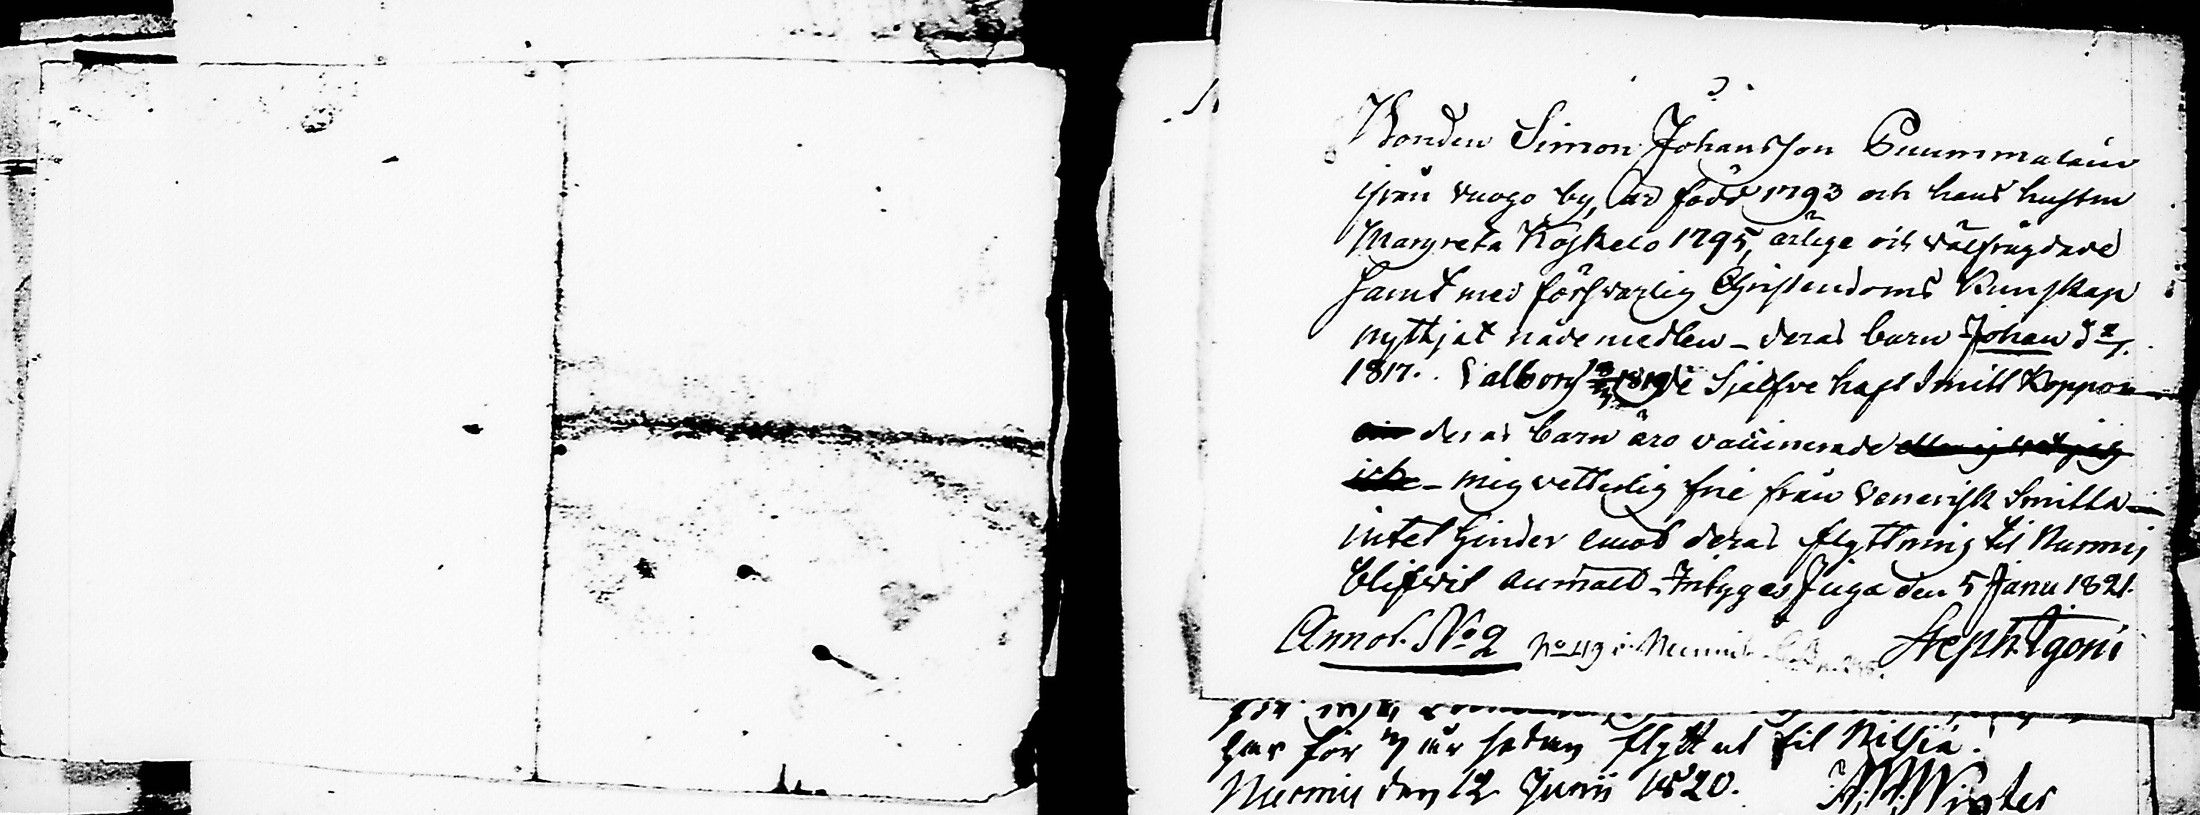 Bonden Simon Johansson Puumalain
ifrån Vuogo by, är född 1793 och hans hustru
Margreta Koskelo 1795, ärlige och välfrägdade
samt med försvarlig Christendoms Kunskap
nyttjat nådemedlen - deras barn Johan d
1817. Valborg 1819 Sjelfve haft Smitt Koppor
deras barn äro vaccinerade
icke - mig vetterlig frie från Venerisk Smitta -
intet hinder emot deras flyttning til Nurmis
blifvit anmält - Intygas Juga den 5 Janu 1821.
Annot. No 2 No 49 i Nurmis Steph. Igoni
har för 7 år sedan flyttat til Nilsiä.
Nurmis den 12 Junii 1820.